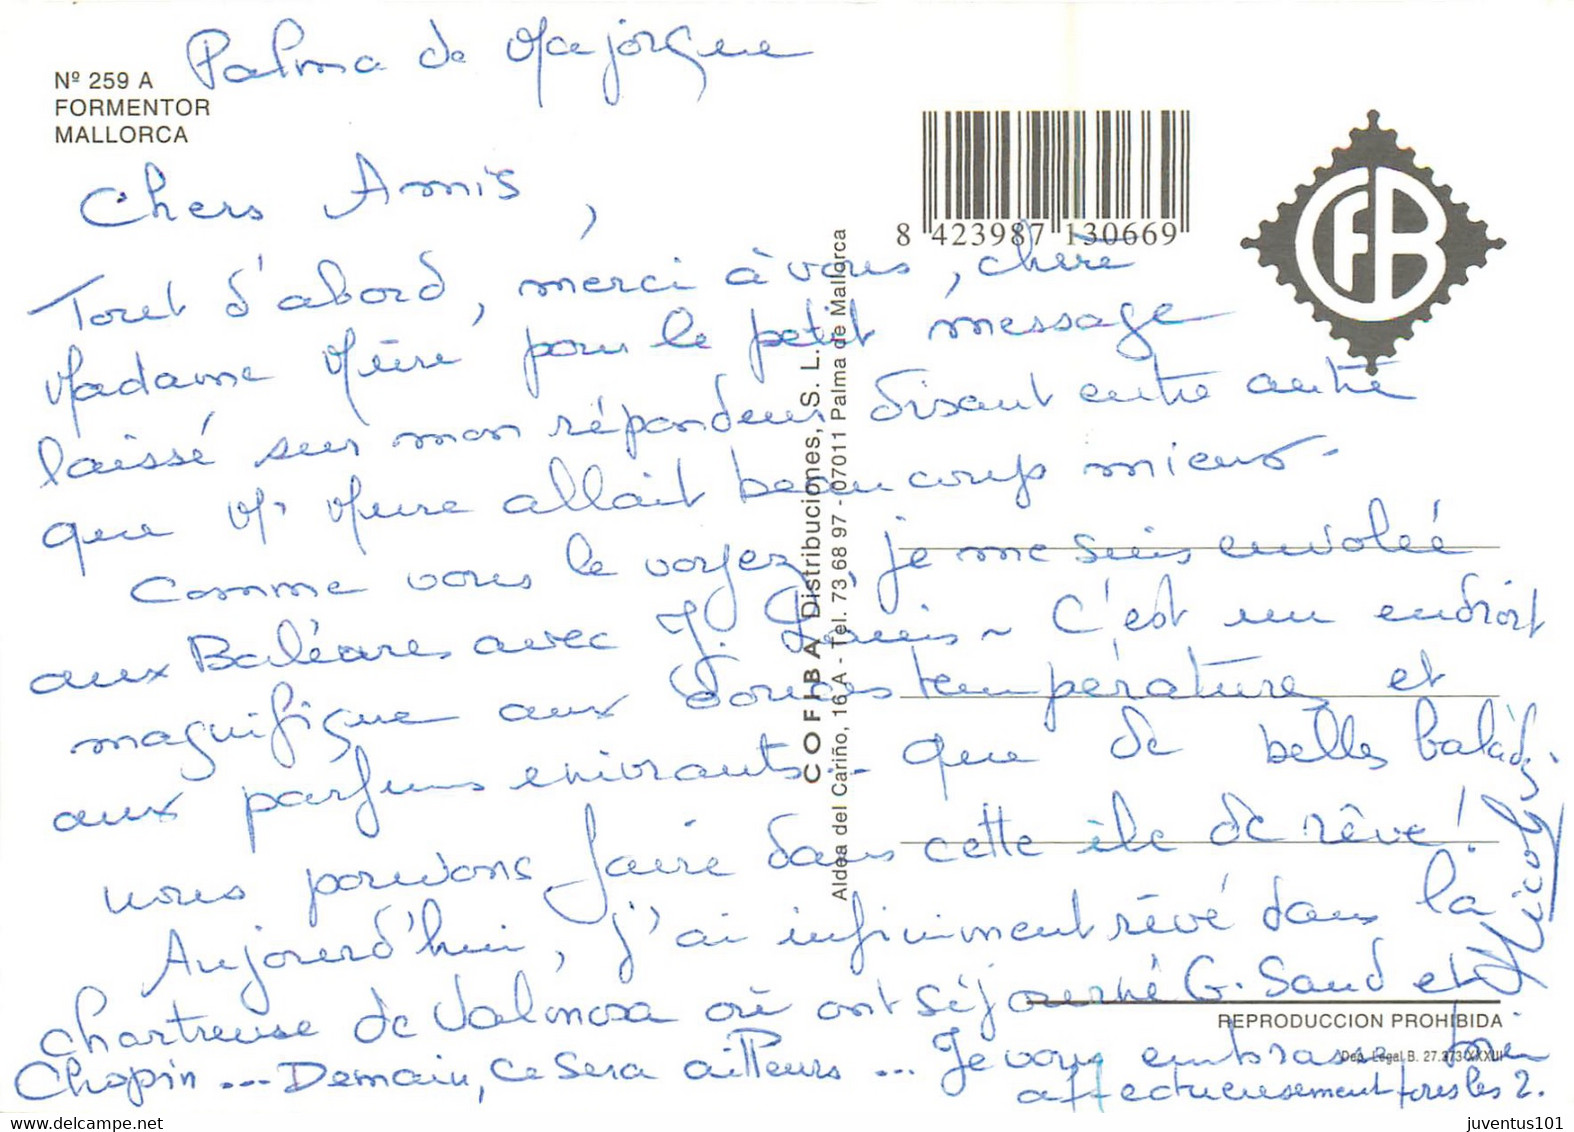 Palma de Majorque
Nº 259 A
FORMENTOR
MALLORCA
8 423987 130669
CFB
Chers Amis,
Tout d'abord, merci à vous, chère
Madame Meire pour le petit message
laissé sur mon répondeur disant entre autre
que Mr Meire allait beaucoup mieux.
Comme vous le voyez, je me suis envolée
aux Baléares avec J. Louis ~ C'est un endroit
magnifique aux douces températures et
aux parfums enivrants... que de belles balades
nous pouvons faire dans cette île de rêve !
Aujourd'hui, j'ai infiniment rêvé dans la
chartreuse de Valmosa où ont séjourné G. Sand et
Chopin ... Demain, ce sera ailleurs ... Je vous embrasse bien
affectueusement tous les 2.
Nicole
COFIBA Distribuciones, S. L.
Aldea del Cariño, 16 A - Tel. 73 68 97 - 07011 Palma de Mallorca
REPRODUCCION PROHIBIDA
Dep. Legal B. 27.373-XXXIII
juventus101